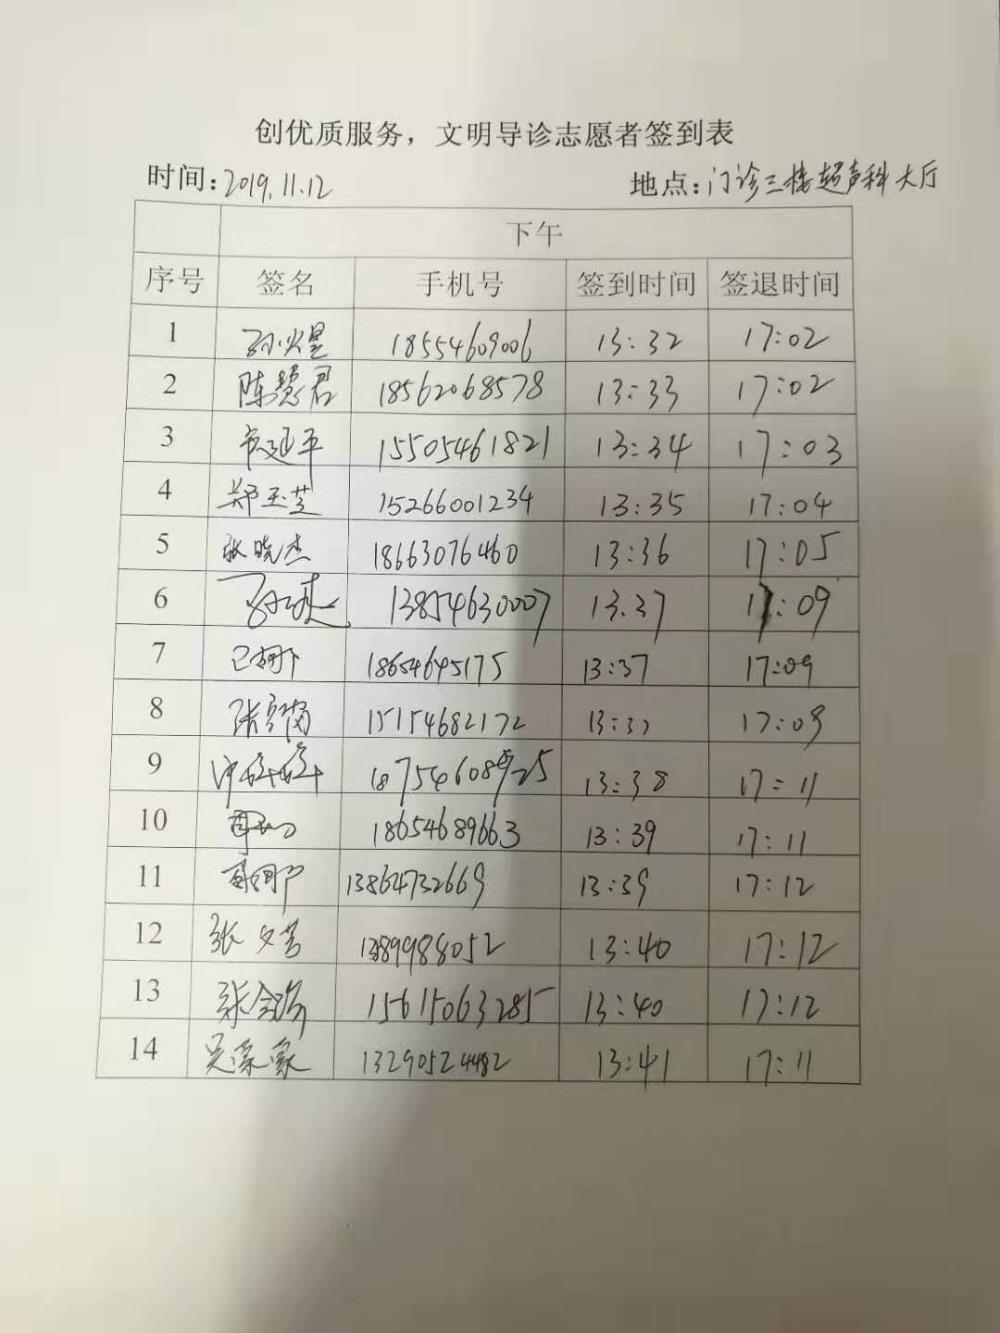 创优质服务，文明导诊志愿者签到表
时间：2019.11.12 地点：门诊三楼超声科大厅
下午
序号 签名 手机号 签到时间 签退时间
1 18554609006 13:32 17:02
2 陈慧君 18562068578 13:33 17:02
3 15505461821 13:34 17:03
4 郑玉芝 15266001234 13:35 17:04
5 张晓杰 18663076460 13:36 17:05
6 13854630007 13:37 17:09
7 18654645175 13:37 17:09
8 15154682172 13:37 17:09
9 13:38 17:11
10 18654689663 13:39 17:11
11 13864732669 13:39 17:12
12 张文芳 13:40 17:12
13 15615063285 13:40 17:12
14 13290524482 13:41 17:11